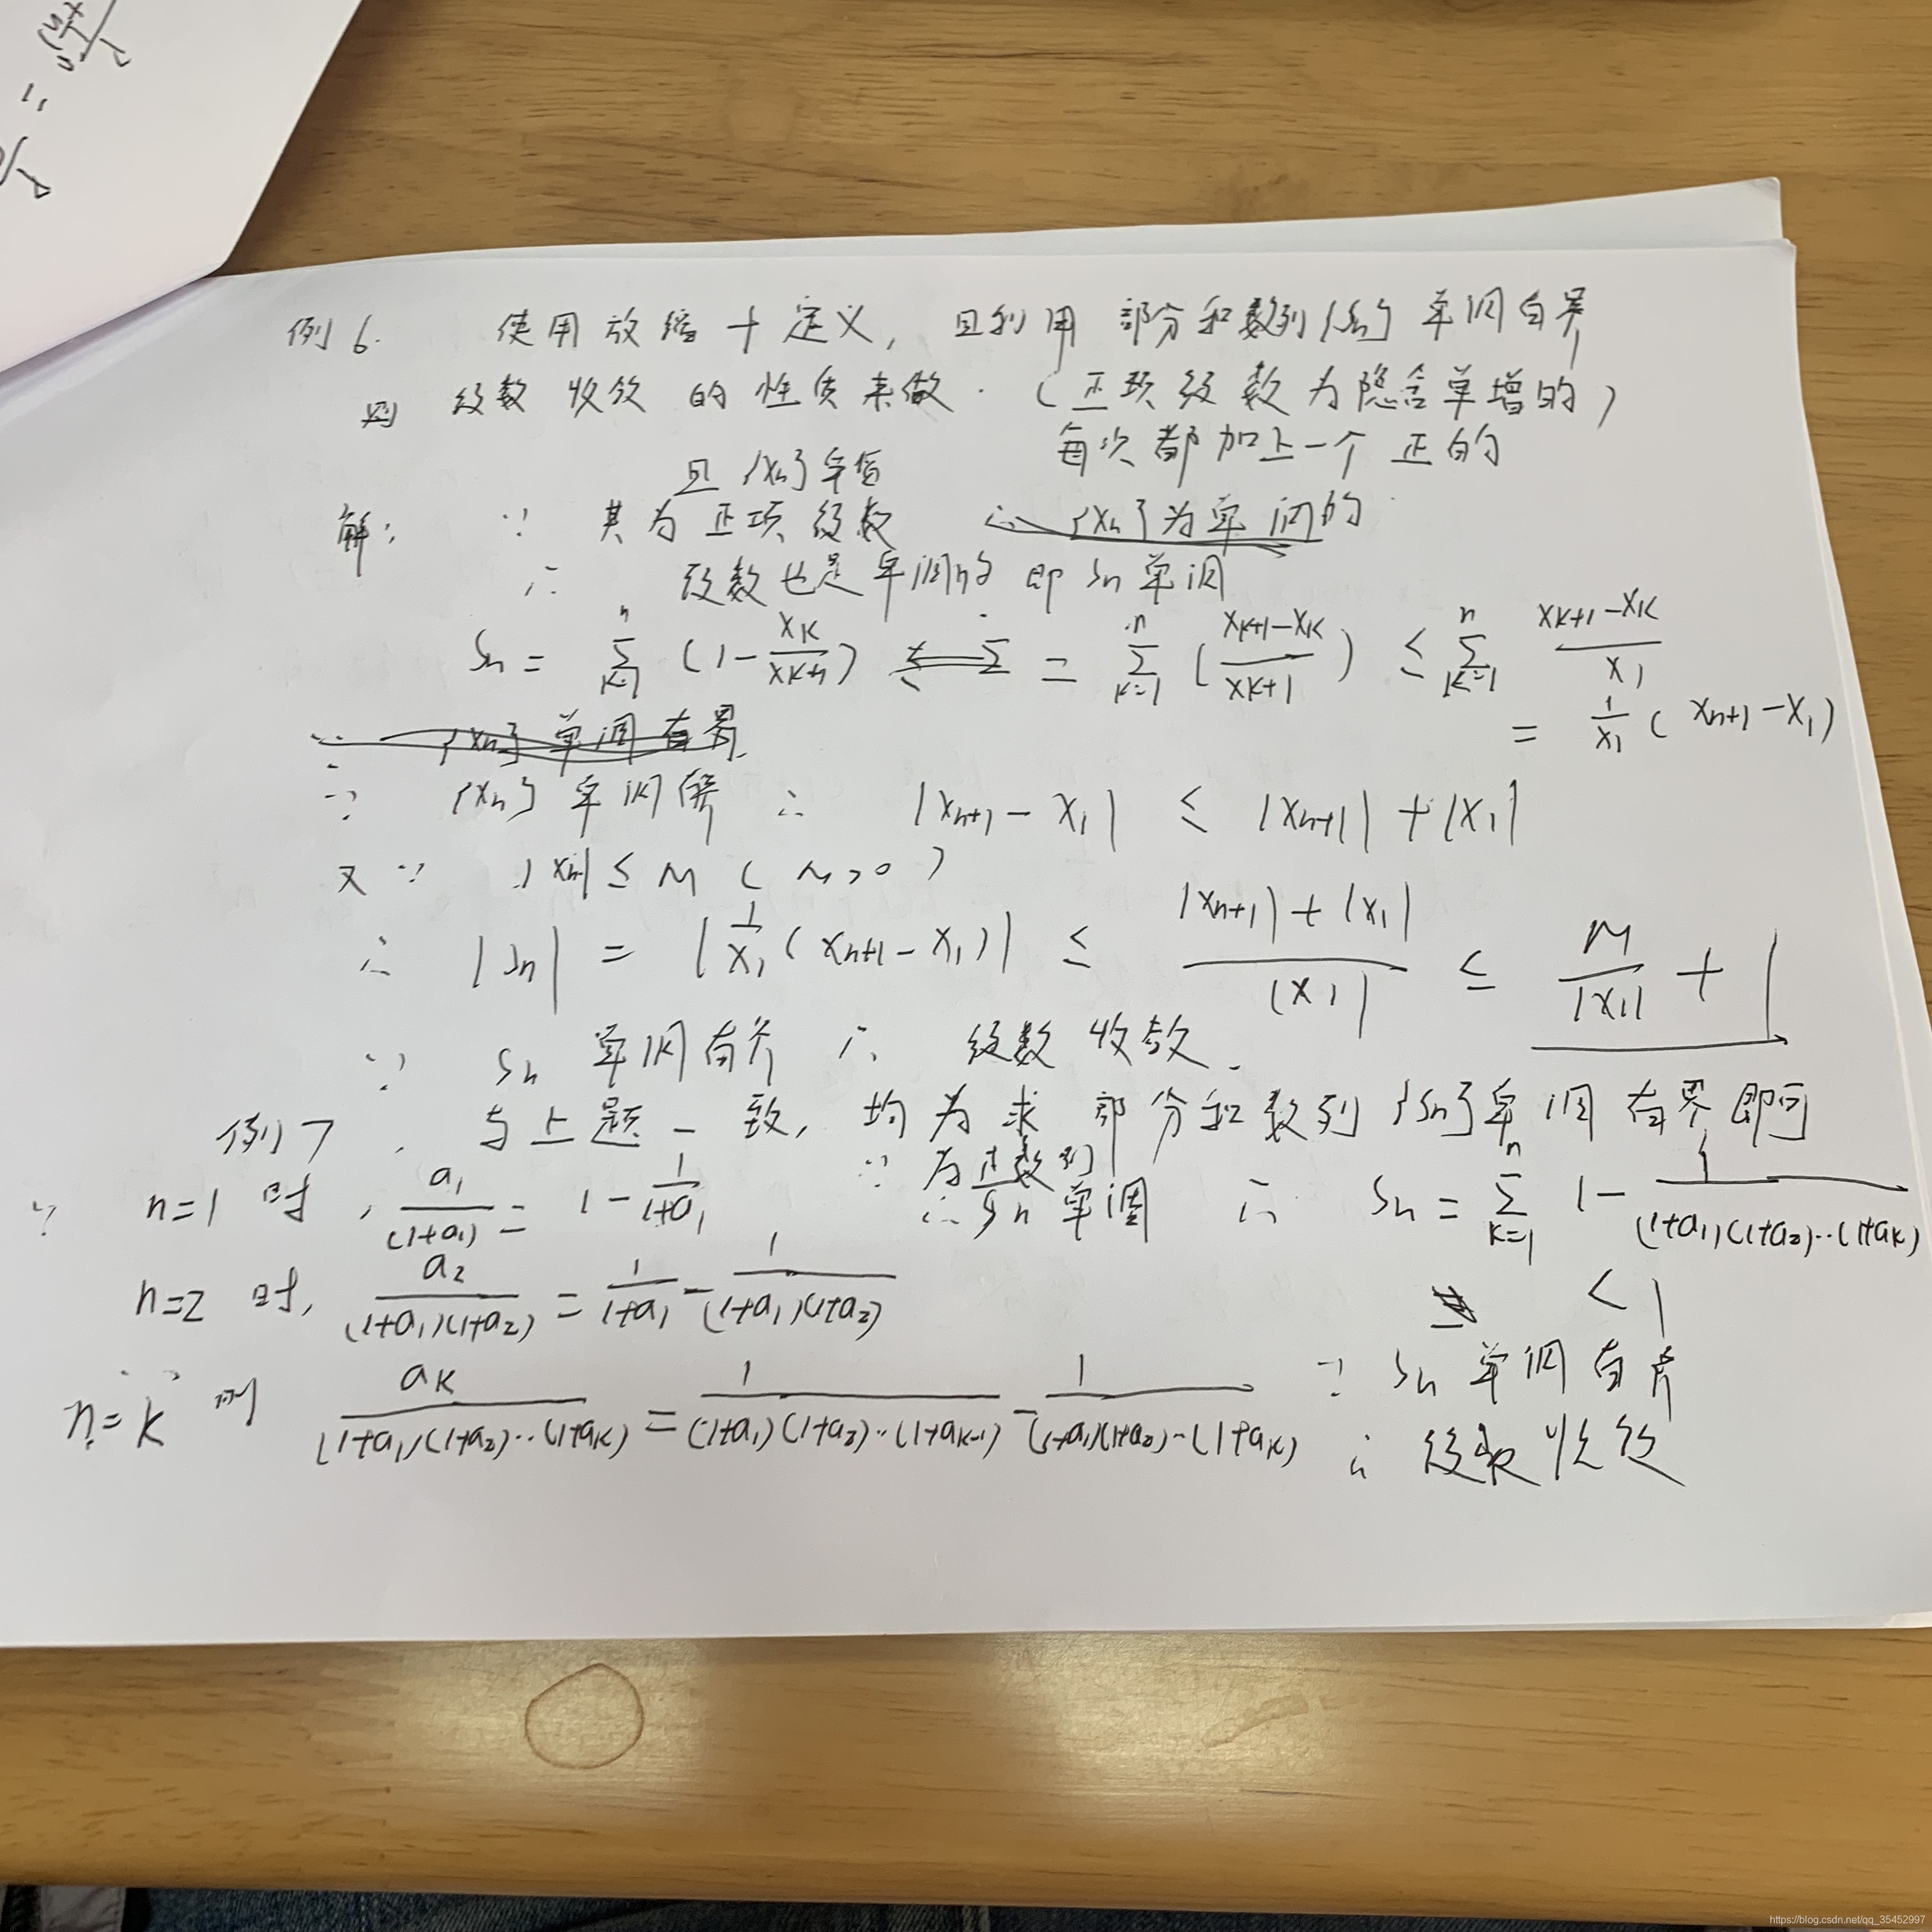 例6. 使用放缩+定义, 且利用部分和数列{Sn}单调有界
则级数收敛的性质来做.(正项级数为隐含单增的)
每次都加上一个正的
且{xn}单增
解: ∵ 其为正项级数 ∴ {xn}为单调的
∴ 级数也是单调的 即 Sn单调
Sn = Σ_{k=1}^{n} (1 - xk/xk+1) = Σ_{k=1}^{n} ((xk+1 - xk)/xk+1) ≤ Σ_{k=1}^{n} (xk+1 - xk)/x1
= 1/x1 (xn+1 - x1)
∵ {xn}单调有界
∵ {xn} 单调有界 ∴ |xn+1 - x1| ≤ |xn+1| + |x1|
又∵ |xn| ≤ M (M>0)
∴ |Sn| = |1/x1 (xn+1 - x1)| ≤ (|xn+1| + |x1|)/|x1| ≤ M/|x1| + 1
∵ Sn 单调有界 ∴ 级数收敛.
例7, 与上题一致, 均为求部分和数列{Sn}单调有界即可
∵ n=1 时, a1/(1+a1) = 1 - 1/(1+a1)
∵ 为正数列
∴ Sn 单调 ∴ Sn = Σ_{k=1}^{n} 1 - 1/((1+a1)(1+a2)··(1+ak))
< 1
n=2 时, a2/((1+a1)(1+a2)) = 1/(1+a1) - 1/((1+a1)(1+a2))
n=k 时 ak/((1+a1)(1+a2)··(1+ak)) = 1/((1+a1)(1+a2)··(1+ak-1)) - 1/((1+a1)(1+a2)··(1+ak))
∵ Sn 单调有界
∴ 级数收敛
https://blog.csdn.net/qq_35452997